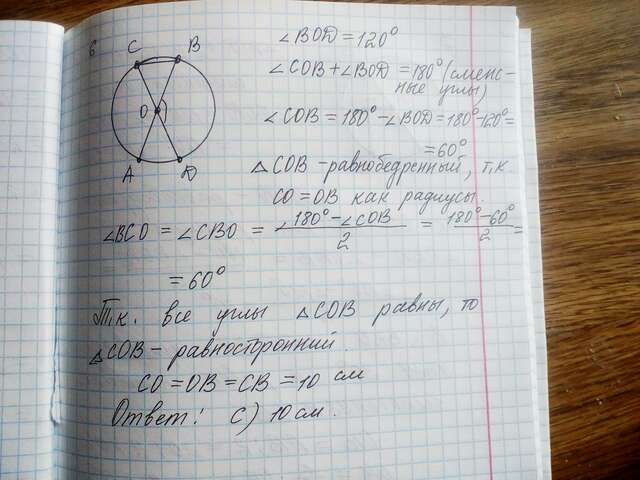 6
C B
O
A D
∠BOD = 120°
∠COB + ∠BOD = 180° (смеж-
ные углы)
∠COB = 180° - ∠BOD = 180° - 120° =
= 60°
△COB - равнобедренный, т.к.
CO = OB как радиусы.
∠BCO = ∠CBO = (180° - ∠COB)/2 = (180° - 60°)/2 =
= 60°
Т.к. все углы △COB равны, то
△COB - равносторонний.
CO = OB = CB = 10 см
Ответ: C) 10 см.